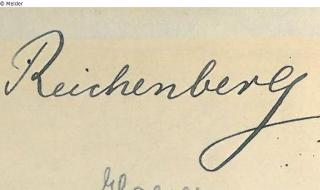 © Melder
Reichenberg